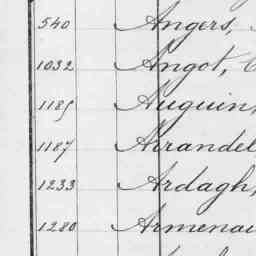 540 Angers,
1032 Angot,
1185 Auguin,
1187 Arrandel
1233 Ardagh,
1280 Armenau